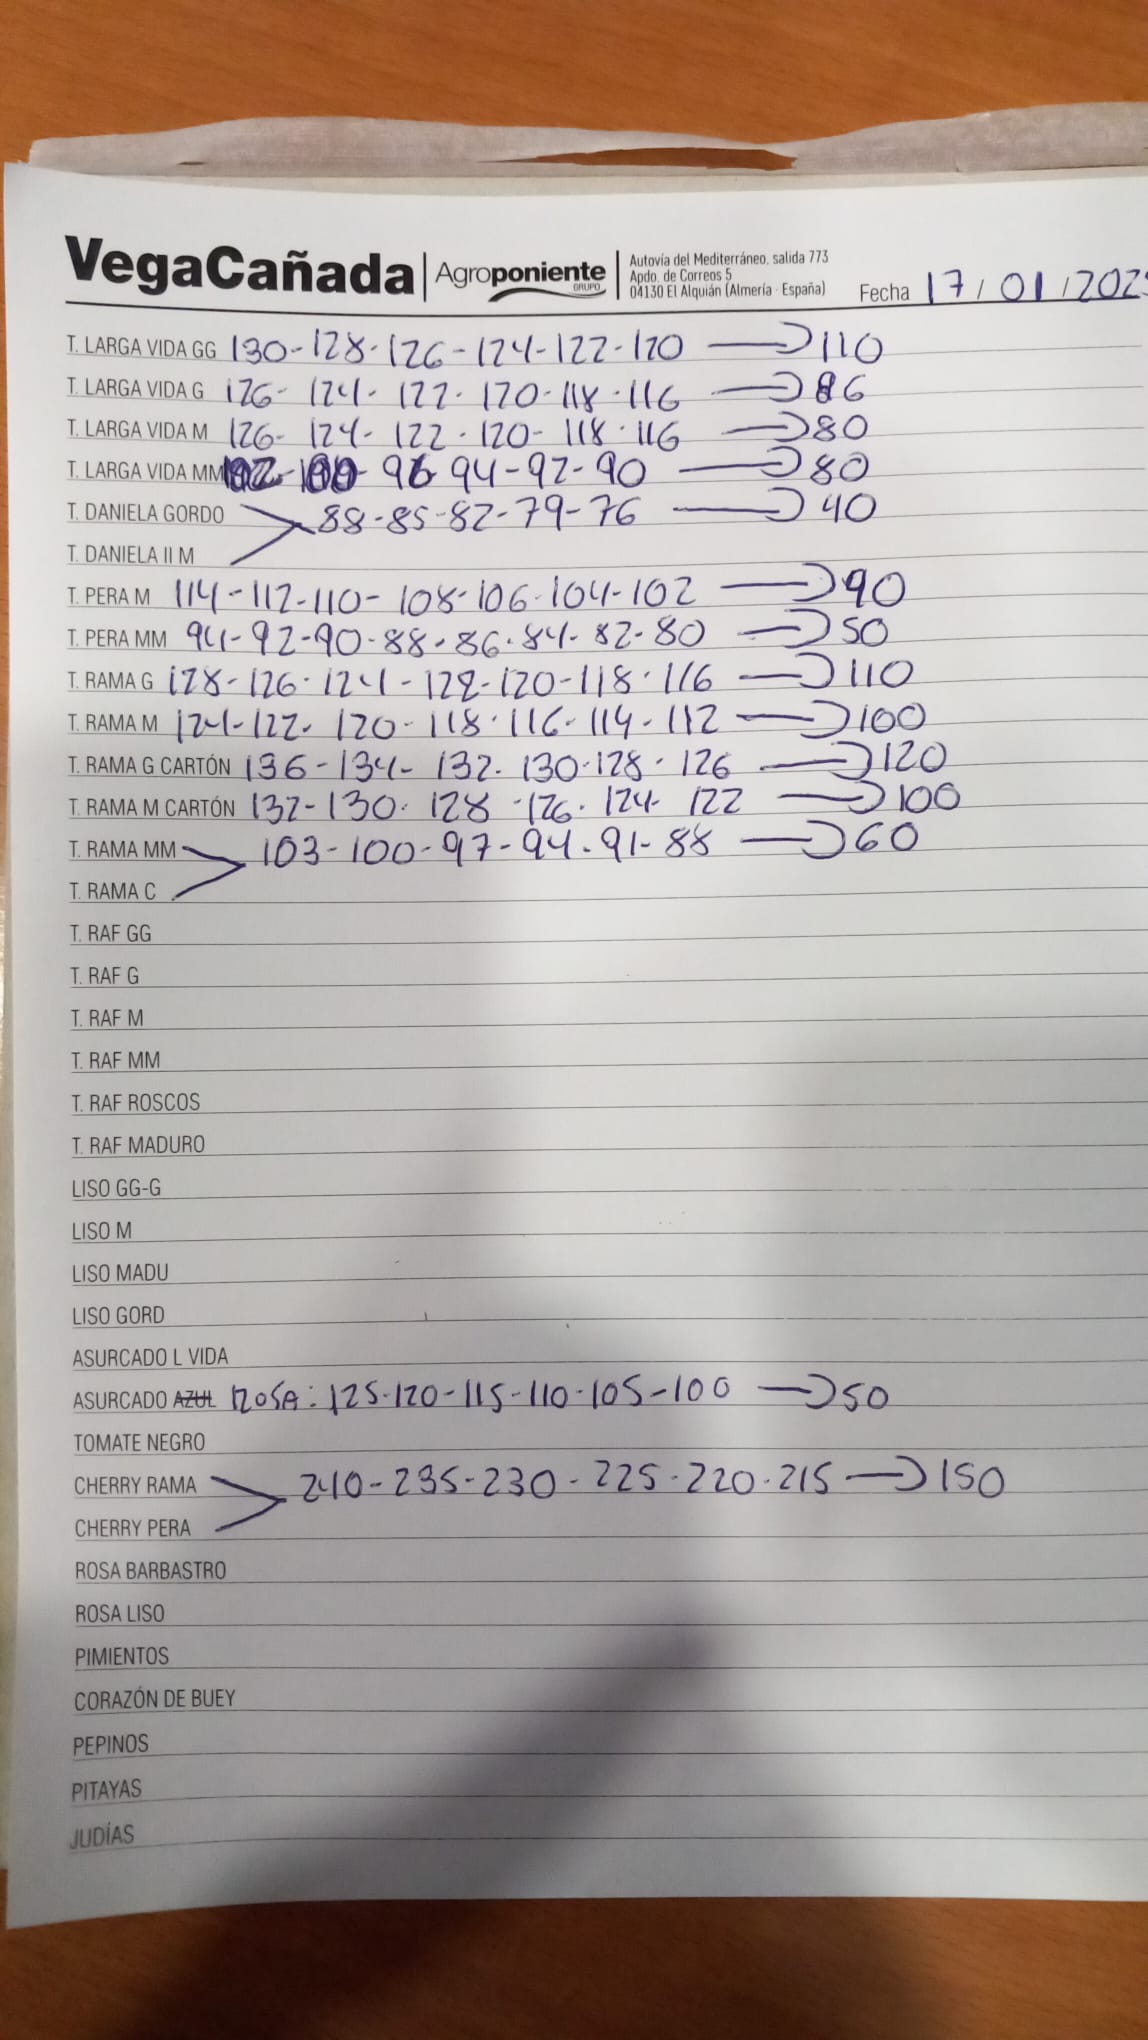 VegaCañada | Agroponiente GRUPO | Autovía del Mediterráneo, salida 773
Apdo. de Correos 5
04130 El Alquián (Almería - España)
Fecha 17/01/202
T. LARGA VIDA GG 130-128-126-124-122-120 → 110
T. LARGA VIDA G 126-124-122-120-118-116 → 86
T. LARGA VIDA M 126-124-122-120-118-116 → 80
T. LARGA VIDA MM 102-100-96-94-92-90 → 80
T. DANIELA GORDO 88-85-82-79-76 → 40
T. DANIELA II M
T. PERA M 114-112-110-108-106-104-102 → 90
T. PERA MM 94-92-90-88-86-84-82-80 → 50
T. RAMA G 128-126-124-122-120-118-116 → 110
T. RAMA M 124-122-120-118-116-114-112 → 100
T. RAMA G CARTÓN 136-134-132-130-128-126 → 120
T. RAMA M CARTÓN 132-130-128-126-124-122 → 100
T. RAMA MM 103-100-97-94-91-88 → 60
T. RAMA C
T. RAF GG
T. RAF G
T. RAF M
T. RAF MM
T. RAF ROSCOS
T. RAF MADURO
LISO GG-G
LISO M
LISO MADU
LISO GORD
ASURCADO L VIDA
ASURCADO AZUL ROSA: 125-120-115-110-105-100 → 50
TOMATE NEGRO
CHERRY RAMA 240-235-230-225-220-215 → 150
CHERRY PERA
ROSA BARBASTRO
ROSA LISO
PIMIENTOS
CORAZÓN DE BUEY
PEPINOS
PITAYAS
JUDÍAS